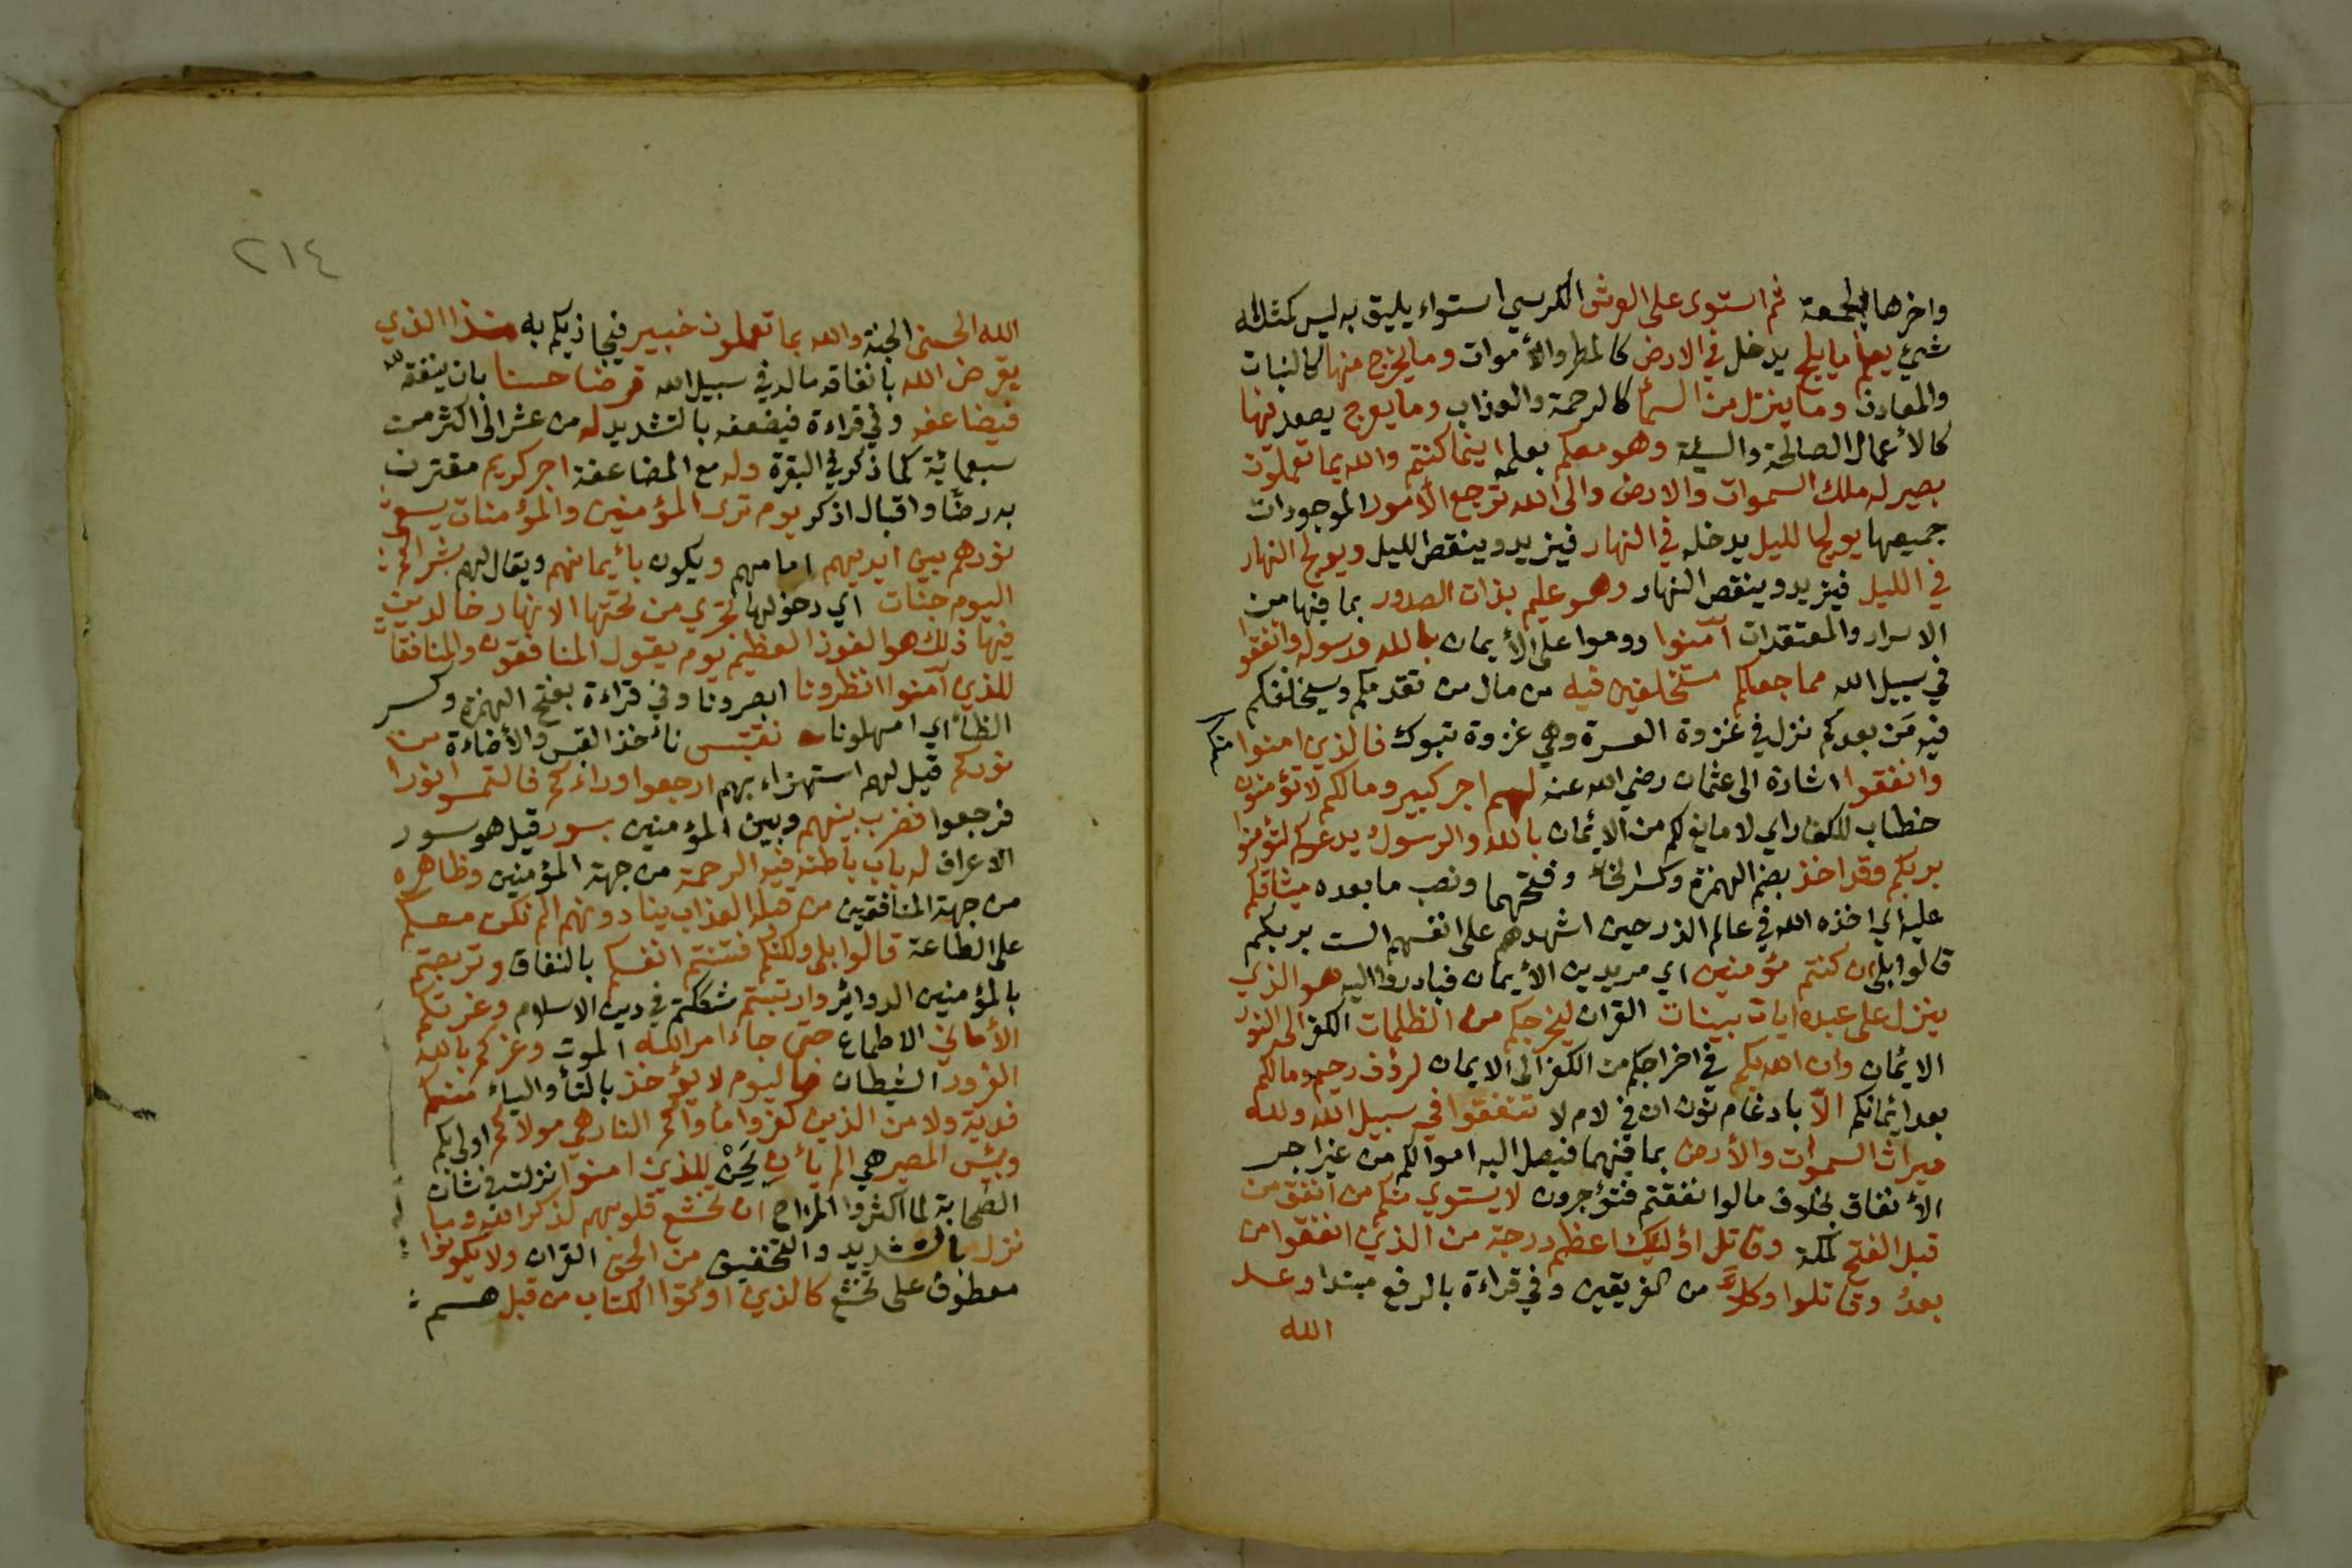 واخرها الجمعة ثم استوى على العرش الكرسي استواء يليق به ليس كمثله
شيئ يعلم ما يلج يدخل في الارض كالمطر والأموات وما يخرج منها كالنبات
والمعادن وما ينزل من السمأ كالرحمة والعذاب وما يعرج يصعد فيها
كالأعمال الصالحة والسيئة وهو معكم بعلمه اينما كنتم والله بما تعملون
بصير له ملك السموات والارض والى الله ترجع الأمور الموجودات
جميعها يولج الليل يدخله في النهار فيزيد وينقص الليل ويولج النهار
في الليل فيزيد وينقص النهار وهو عليم بذات الصدور بما فيها من
الاسرار والمعتقدات آمنوا دوموا على الأيمان بالله ورسوله وانفقوا
في سبيل الله مما جعلكم مستخلفين فيه من مال من تقدمكم وسيخلفكم
فيه من بعدكم نزل في غزوة العسرة وهي غزوة تبوك فالذين امنوا منكم
وانفقوا اشارة الى عثمان رضي الله عنه لهم اجر كبير ومالكم لا تؤمنون
خطاب للكفار اي لا مانع لكم من الايمان بالله والرسول يدعوكم لتؤمنوا
بربكم وقد اخذ بضم الهمزة وكسر الخأ وفتحهما ونصب ما بعده ميثاقكم
عليه اي اخذه الله في عالم الذر حين اشهدهم على انفسهم الست بربكم
قالوا بلى ان كنتم مؤمنين اي مريدين الأيمان فبادروا اليه هو الذي
ينزل على عبده ايات بينات القران ليخرجكم من الظلمات الكفر الى النور
الايمان وان الله بكم في اخراجكم من الكفر الى الايمان لرؤف رحيم ومالكم
بعد ايمانكم الّا بادغام نون ان في لام لا تنفقوا في سبيل الله ولله
ميراث السموات والأرض بما فيهما فيصل اليه اموالكم من غير اجر
الأنفاق بخلاف ما لو انفقتم فتؤجرون لا يستوي منكم من انفق من
قبل الفتح لمكة وقاتل اؤليك اعظم درجة من الذين انفقوا من
بعد وقاتلوا وكلاً من الفريقين وفي قراءة بالرفع مبتدا وعد
الله
٢١٤
الله الحسنى الجنة والله بما تعملون خبير فيجازيكم به من ذا الذي
يقرض الله بانفاقه ماله في سبيل الله قرضا حسنا بان ينفقه لله
فيضاعفه وفي قراءة فيضعفه بالتشديد له من عشر الى اكثر من
سبعمائة كما ذكر في البقرة وله مع المضاعفة اجر كريم مقترن
به رضًا واقبال اذكر يوم ترى المؤمنين والمؤمنات يسعى
نورهم بين ايديهم امامهم ويكون بأيمانهم ويقال لهم بشراكم
اليوم جنات اي دخولها تجري من تحتها الانهار خالدين
فيها ذلك هو الفوز العظيم يوم يقول المنافقون والمنافقات
للذين آمنوا انظرونا ابصرونا وفي قراءة بفتح الهمزة وكسر
الظأ اي امهلونا نقتبس نأخذ القبس والأضاءة من
نوركم قيل لهم استهزاء بهم ارجعوا وراءكم فالتمسوا نورا
فرجعوا فضرب بينهم وبين المؤمنين بسور قيل هو سور
الاعراف له باب باطنه فيه الرحمة من جهة المؤمنين وظاهره
من جهة المنافقين من قبله العذاب ينادونهم الم نكن معكم
على الطاعة قالوا بلى ولكنكم فتنتم انفسكم بالنفاق وتربصتم
بالمؤمنين الدوائر وارتبتم شككتم في دين الاسلام وغرتكم
الأماني الاطماع حتى جاء امر الله الموت وغركم بالله
الغرور الشيطان فاليوم لا يؤخذ بالتأ والياء منكم
فدية ولا من الذين كفروا مأواكم النار هي مولاكم اولى بكم
وبئس المصير هي الم يأن يَحِنْ للذين امنوا نزلت في شان
الصحابة لما اكثروا المزاح ان تخشع قلوبهم لذكر الله وما
نزل بالتشديد والتخفيف من الحق القران ولا يكونوا
معطوف على تخشع كالذين اوتوا الكتاب من قبل هم